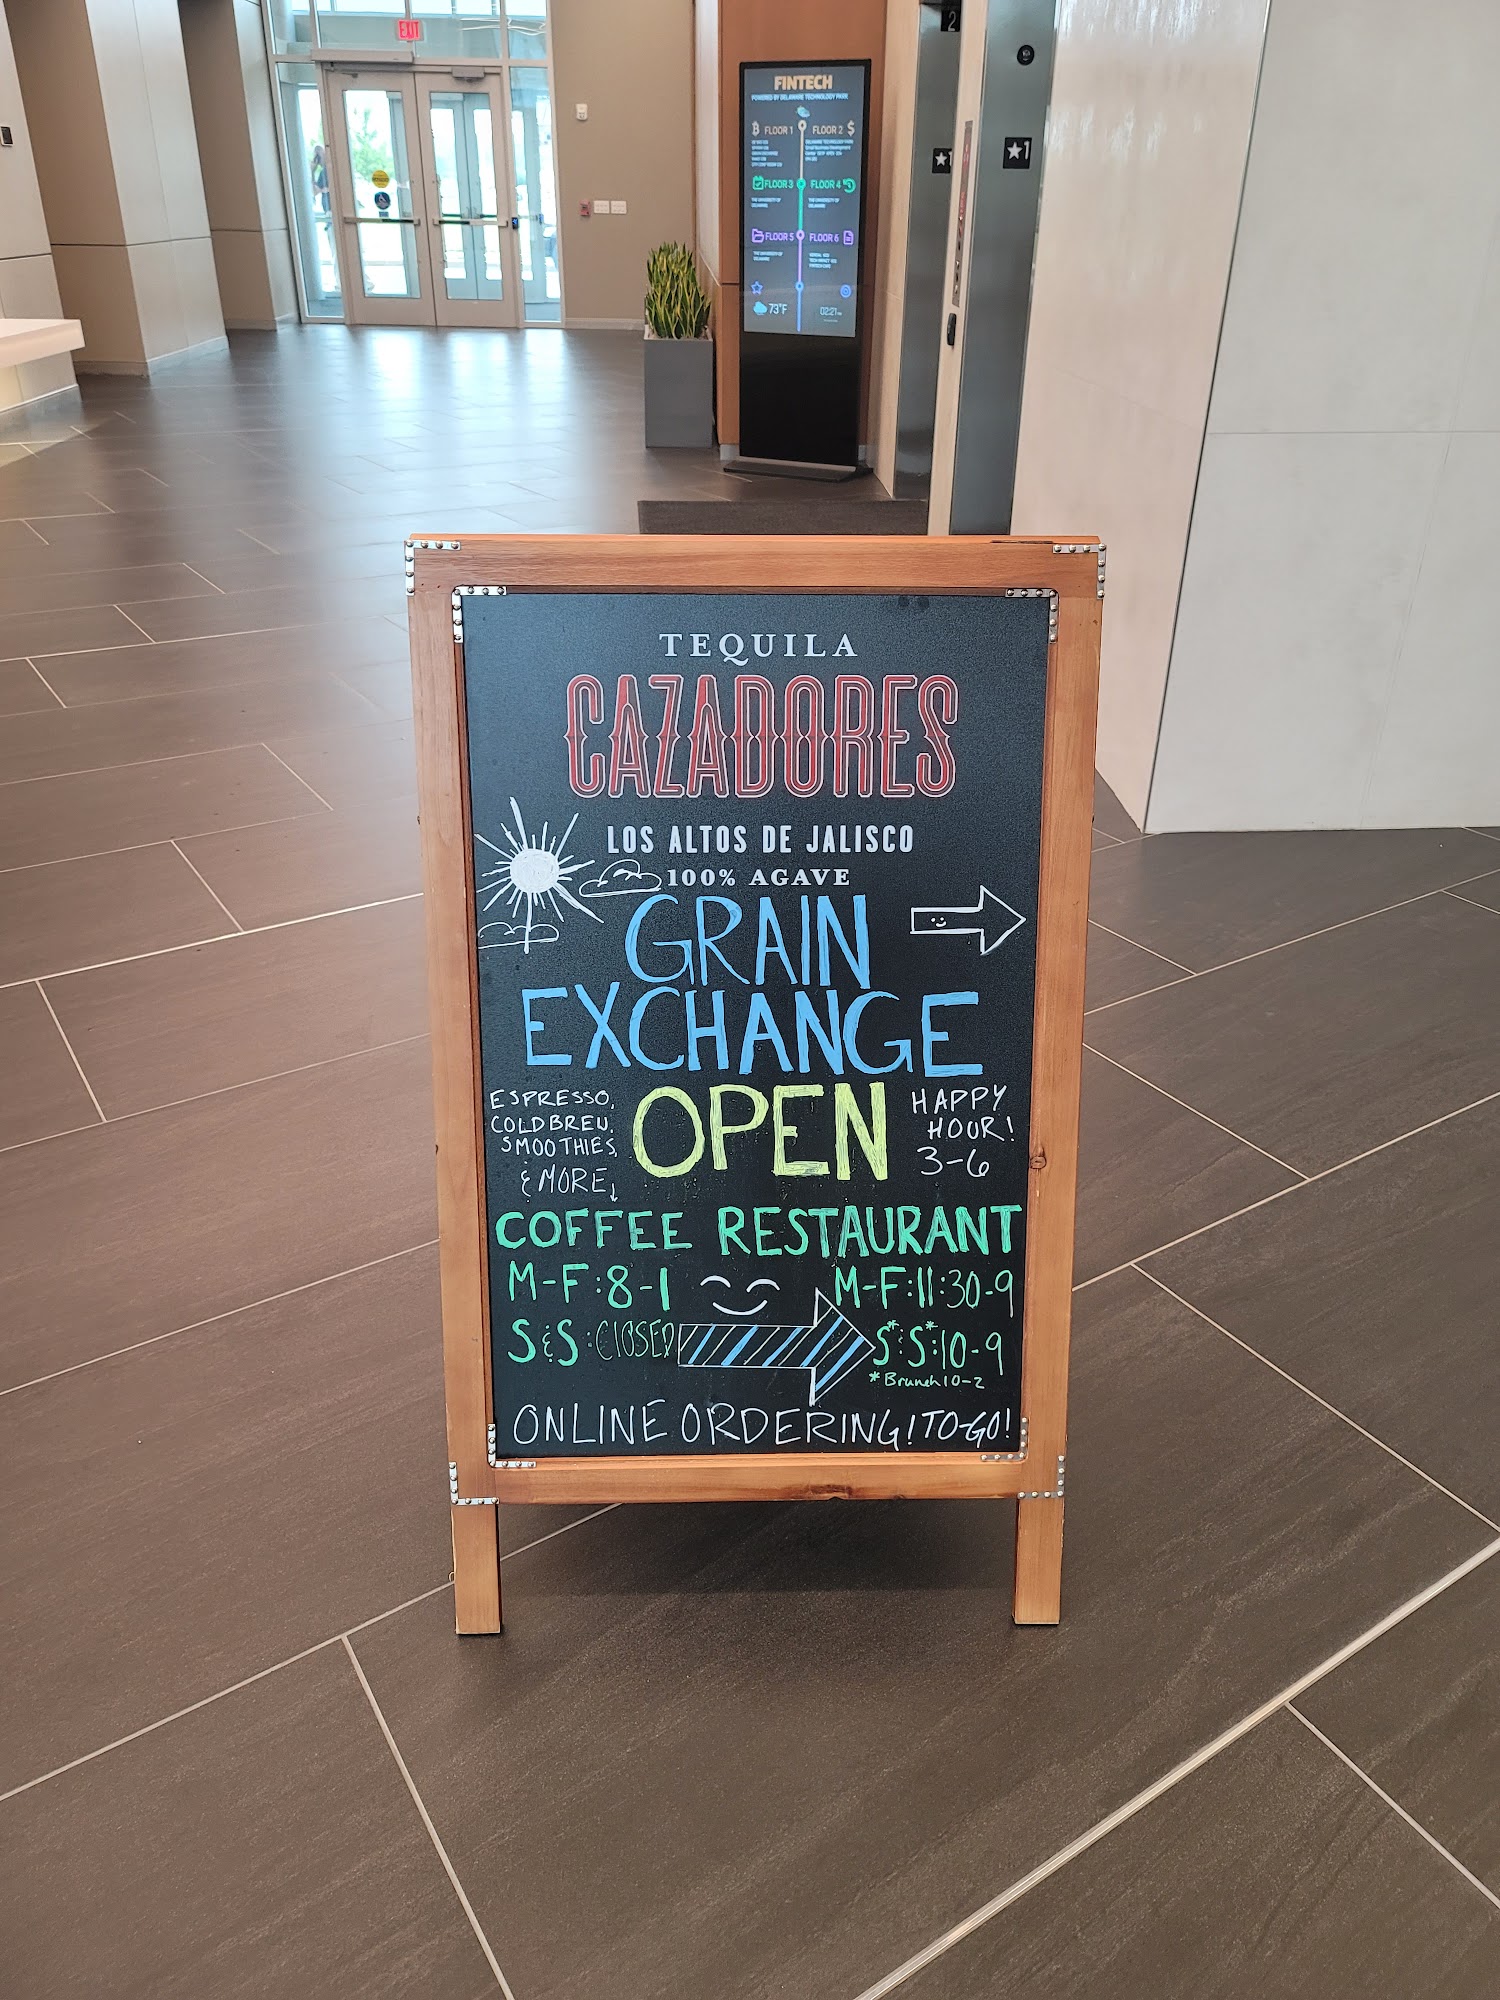 EXIT
2
FINTECH
POWERED BY DELAWARE TECHNOLOGY PARK
FLOOR 1 FLOOR 2
FLOOR 3 FLOOR 4
THE UNIVERSITY OF DELAWARE THE UNIVERSITY OF DELAWARE
FLOOR 5 FLOOR 6
THE UNIVERSITY OF DELAWARE
73°F 02:21
★1
TEQUILA
CAZADORES
LOS ALTOS DE JALISCO
100% AGAVE
GRAIN
EXCHANGE
OPEN
ESPRESSO,
COLDBREW,
SMOOTHIES,
& MORE↓
HAPPY
HOUR!
3-6
COFFEE RESTAURANT
M-F:8-1 M-F:11:30-9
S&S:CLOSED S*&S*:10-9
*Brunch 10-2
ONLINE ORDERING! TO-GO!